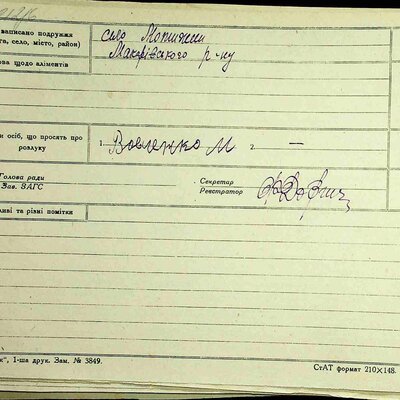 записано подружжя
та, село, місто, район)
село Мотижин
Макарівського р-ну
ова щодо аліментів
и осіб, що просять про
розлуку
1. Вовченко М 2. —
Голова ради
Зав. ЗАГС
Секретар
Реєстратор
ливі та різні помітки
к", 1-ша друк. Зам. № 3849.
СтАТ формат 210×148.